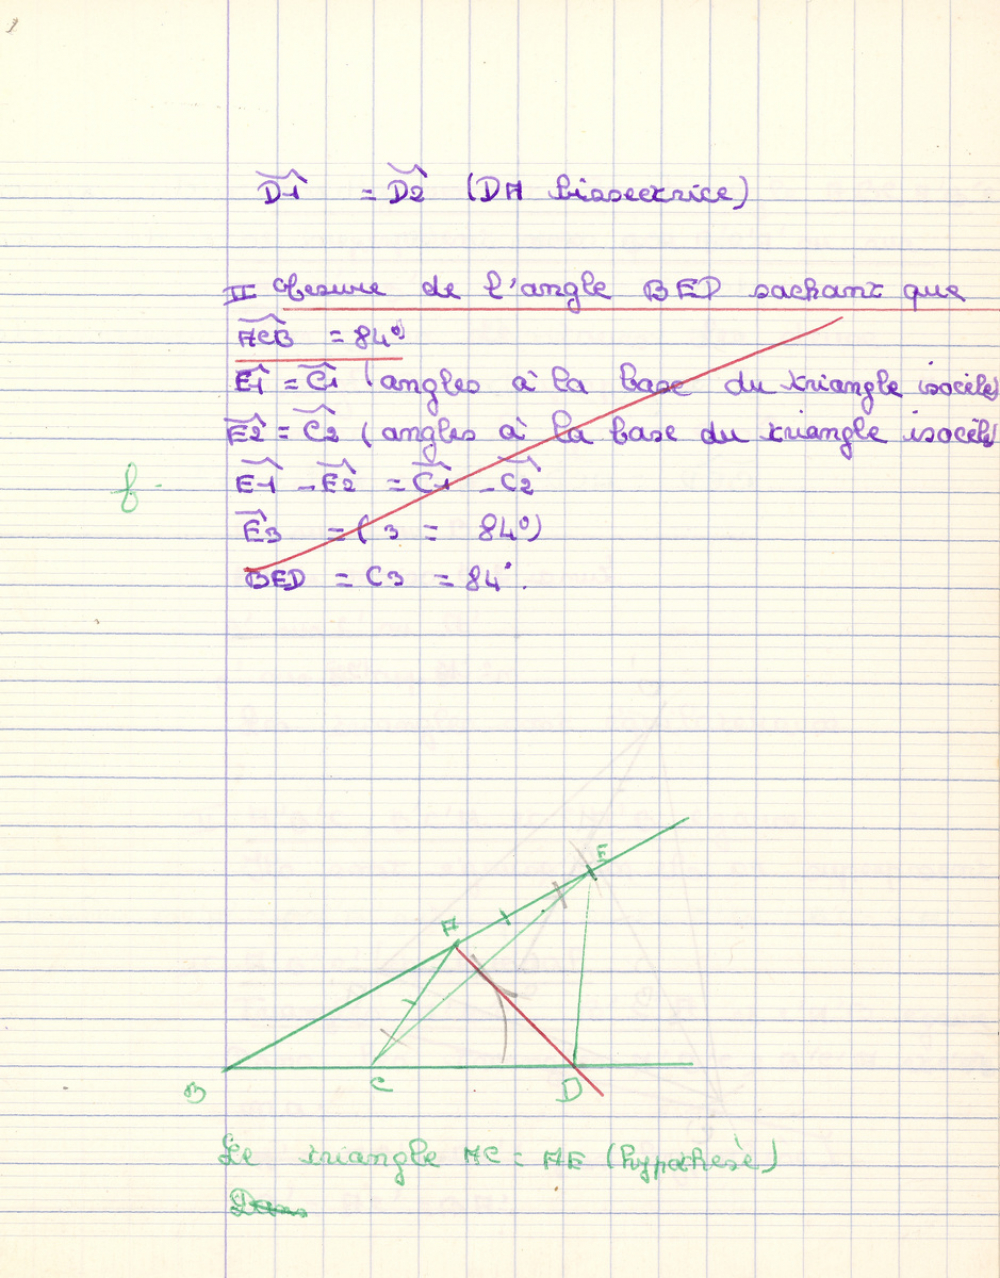 D1 = D2 (DA bissectrice)
II Mesure de l'angle BED sachant que
ACB = 84°
E1 = C1 (angles à la base du triangle isocèle)
E2 = C2 (angles à la base du triangle isocèle
E1 - E2 = C1 - C2
f.
E3 = ( 3 = 84°)
BED = C3 = 84°.
E
A
B
C
D
Le triangle AC = AE (hypothèse)
Dans